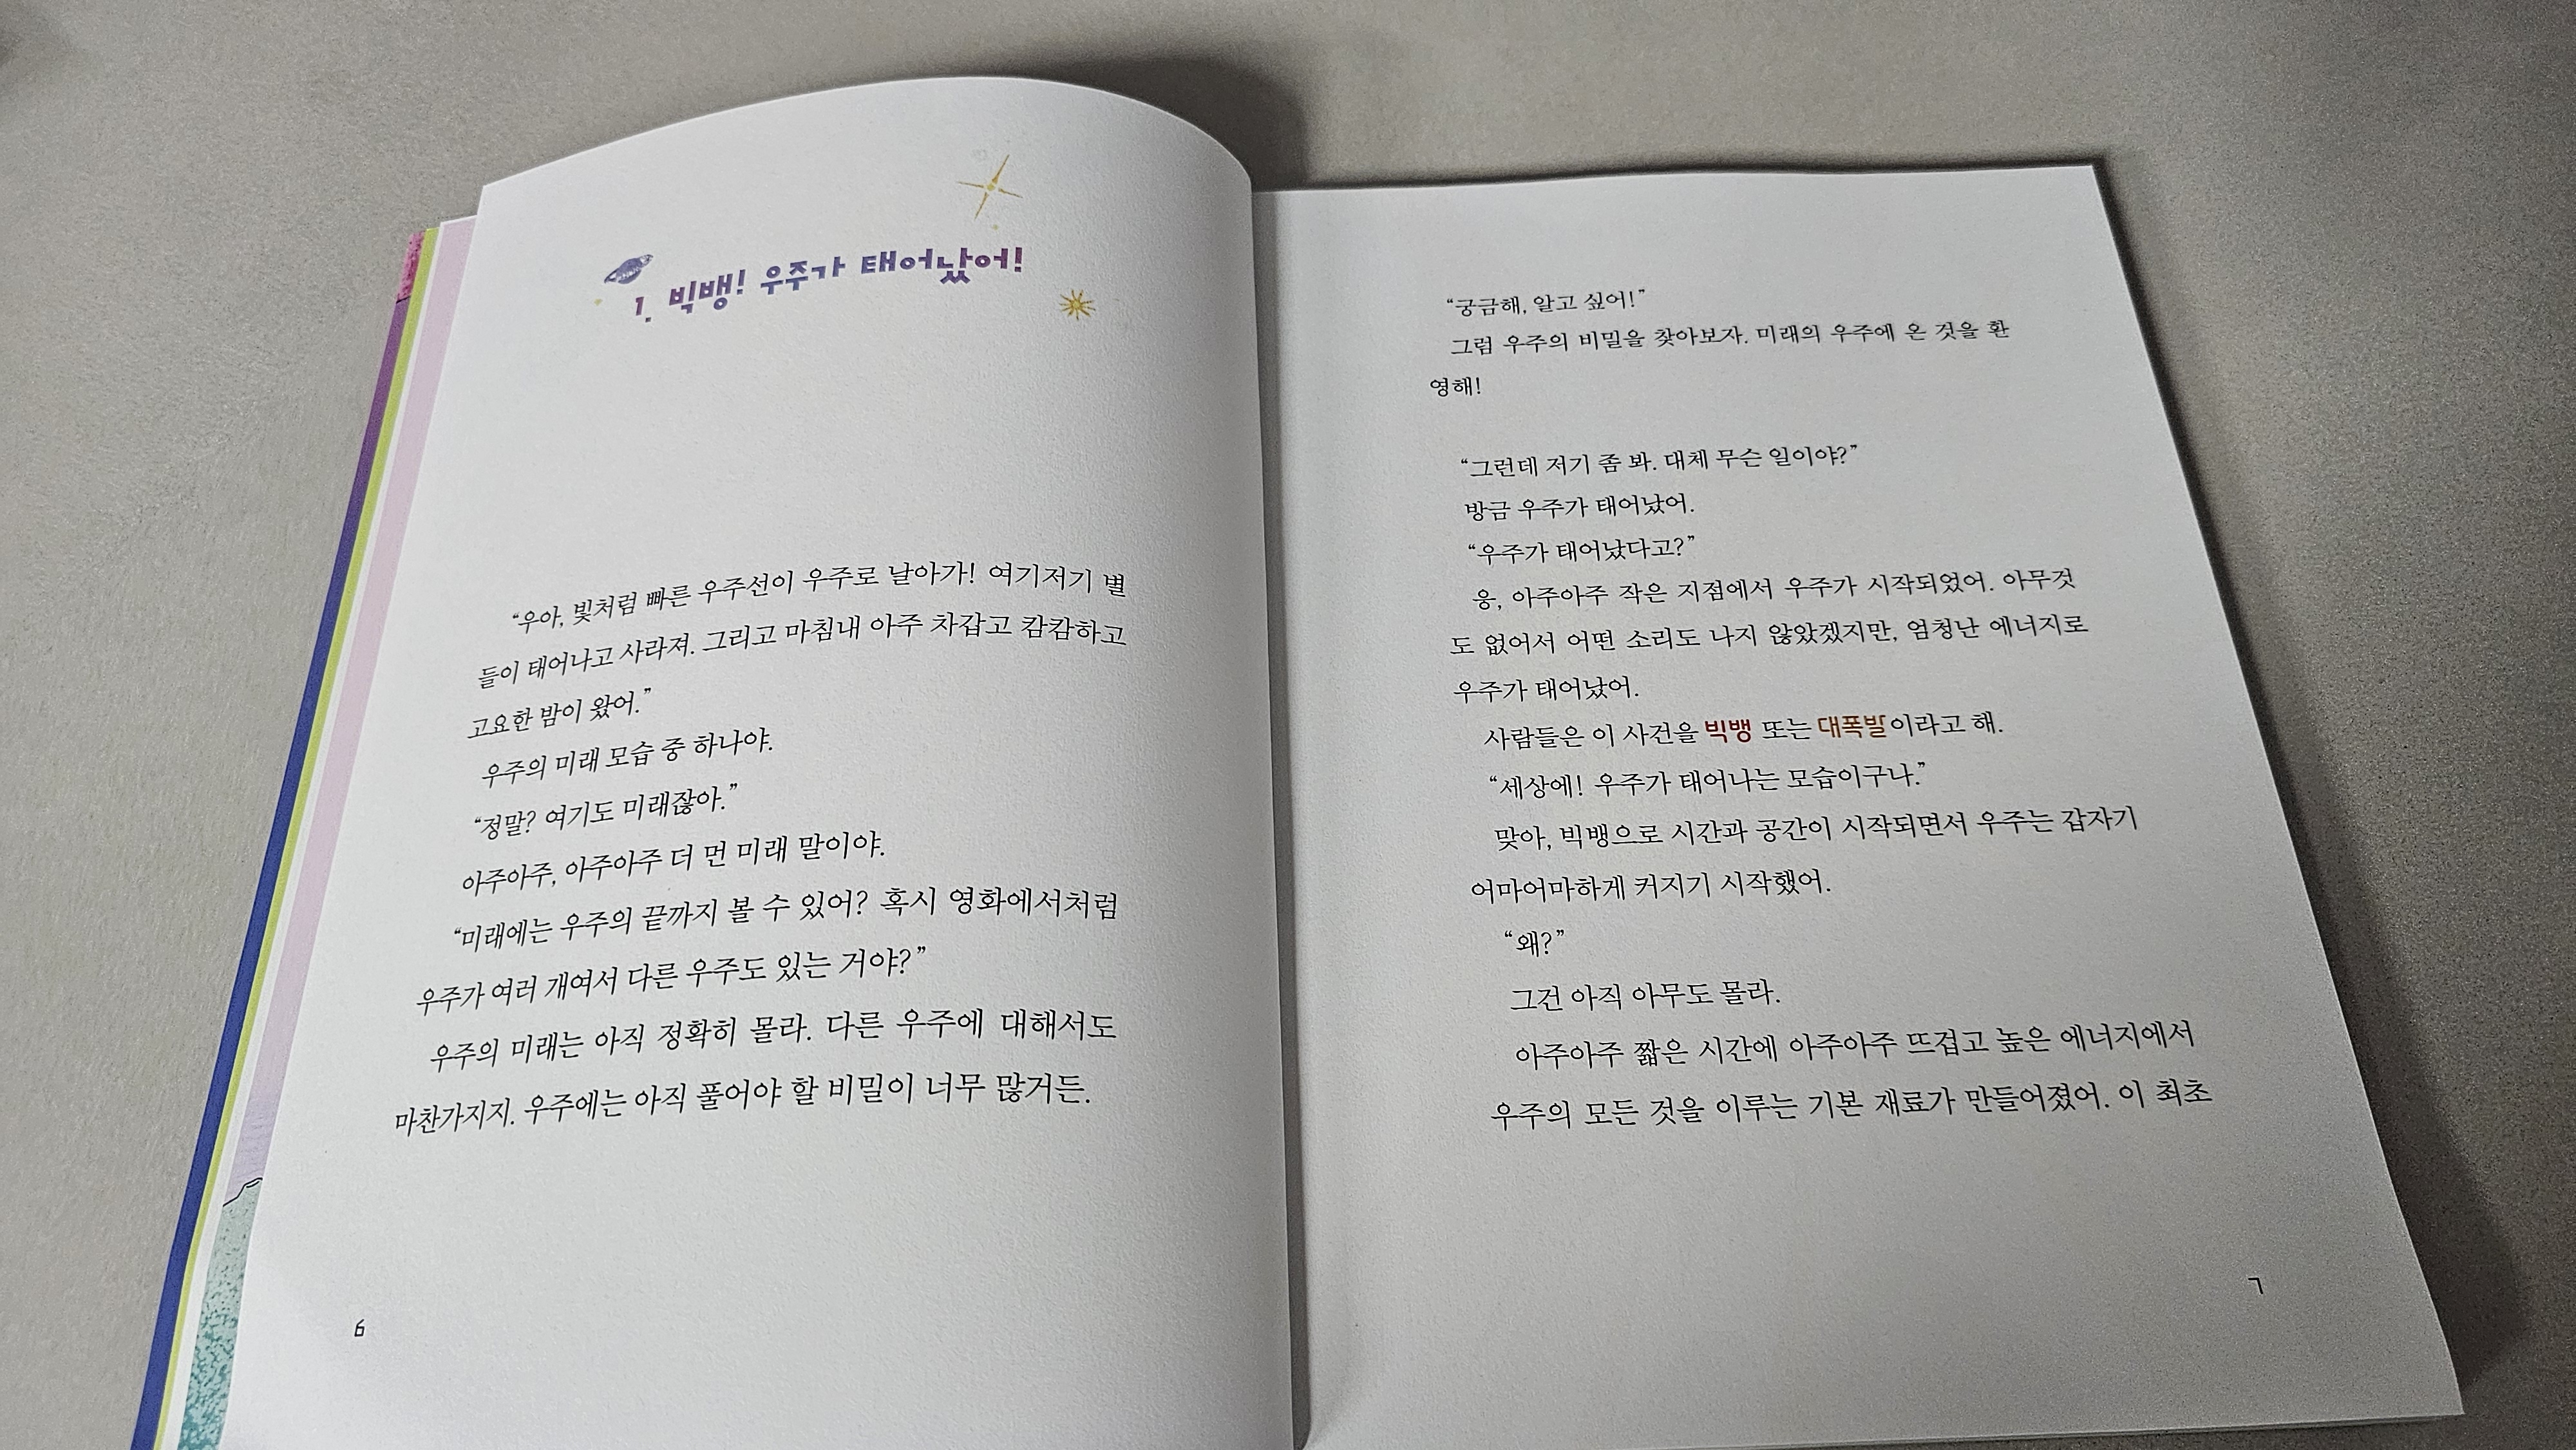 1. 빅뱅! 우주가 태어났어!
“우아, 빛처럼 빠른 우주선이 우주로 날아가! 여기저기 별
들이 태어나고 사라져. 그리고 마침내 아주 차갑고 캄캄하고
고요한 밤이 왔어.”
우주의 미래 모습 중 하나야.
“정말? 여기도 미래잖아.”
아주아주, 아주아주 더 먼 미래 말이야.
“미래에는 우주의 끝까지 볼 수 있어? 혹시 영화에서처럼
우주가 여러 개여서 다른 우주도 있는 거야?”
우주의 미래는 아직 정확히 몰라. 다른 우주에 대해서도
마찬가지지. 우주에는 아직 풀어야 할 비밀이 너무 많거든.
6
“궁금해, 알고 싶어!”
그럼 우주의 비밀을 찾아보자. 미래의 우주에 온 것을 환
영해!
“그런데 저기 좀 봐. 대체 무슨 일이야?”
방금 우주가 태어났어.
“우주가 태어났다고?”
응, 아주아주 작은 지점에서 우주가 시작되었어. 아무것
도 없어서 어떤 소리도 나지 않았겠지만, 엄청난 에너지로
우주가 태어났어.
사람들은 이 사건을 빅뱅 또는 대폭발이라고 해.
“세상에! 우주가 태어나는 모습이구나.”
맞아, 빅뱅으로 시간과 공간이 시작되면서 우주는 갑자기
어마어마하게 커지기 시작했어.
“왜?”
그건 아직 아무도 몰라.
아주아주 짧은 시간에 아주아주 뜨겁고 높은 에너지에서
우주의 모든 것을 이루는 기본 재료가 만들어졌어. 이 최초
7